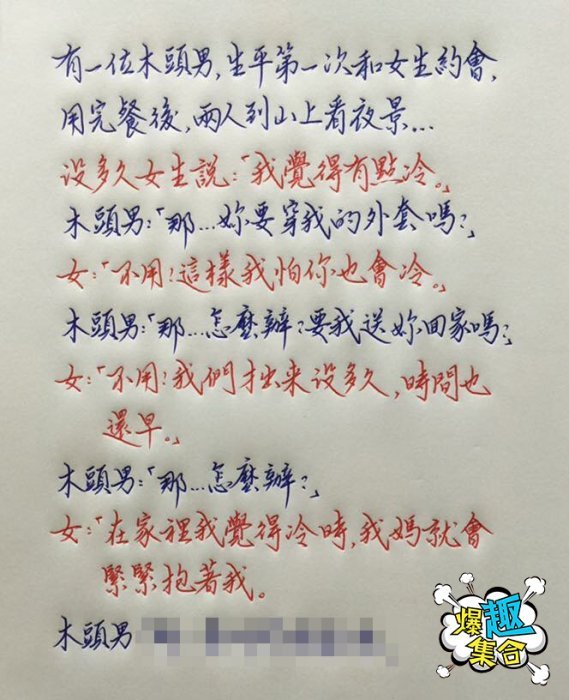 有一位木頭男,生平第一次和女生約會,
用完餐後,兩人到山上看夜景...
沒多久女生說:「我覺得有點冷。」
木頭男:「那...妳要穿我的外套嗎?」
女:「不用!這樣我怕你也會冷。」
木頭男:「那...怎麼辦?要我送妳回家嗎?」
女:「不用!我們才出來沒多久,時間也
還早。」
木頭男:「那...怎麼辦?」
女:「在家裡我覺得冷時,我媽就會
緊緊抱著我。
木頭男
爆趣
集合